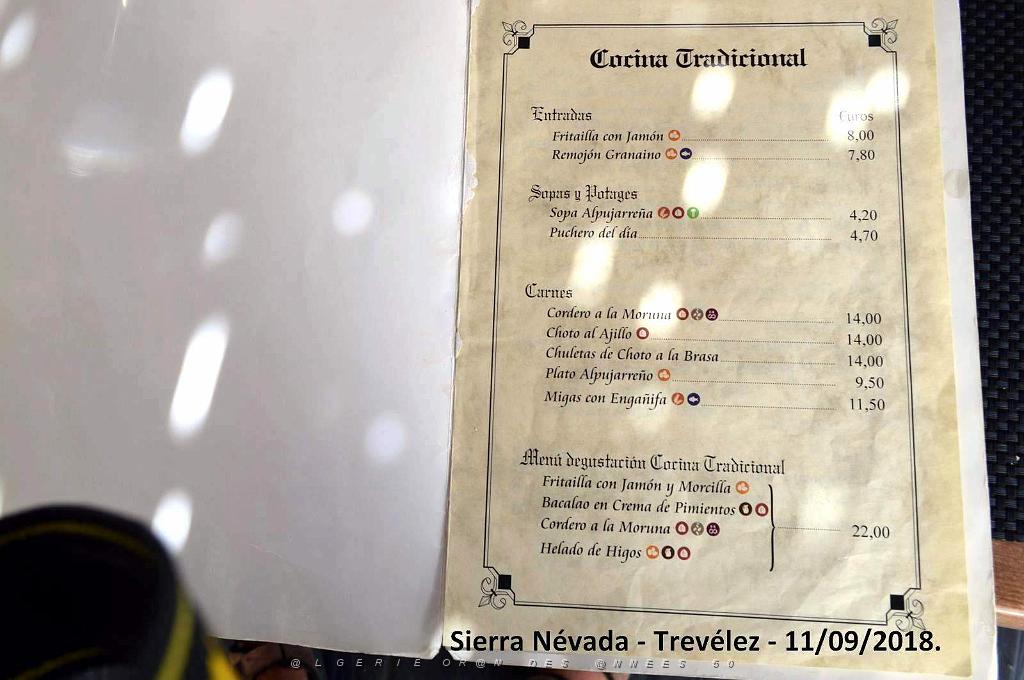 Cocina Tradicional
Entradas Euros
Fritailla con Jamón 8,00
Remojón Granaino 7,80
Sopas y Potages
Sopa Alpujarreña 4,20
Puchero del día 4,70
Carnes
Cordero a la Moruna 14,00
Choto al Ajillo 14,00
Chuletas de Choto a la Brasa 14,00
Plato Alpujarreño 9,50
Migas con Engañifa 11,50
Menú degustación Cocina Tradicional
Fritailla con Jamón y Morcilla
Bacalao en Crema de Pimientos
Cordero a la Moruna 22,00
Helado de Higos
Sierra Névada - Trevélez - 11/09/2018.
@LGERIE OR@N DES @NNEES 50